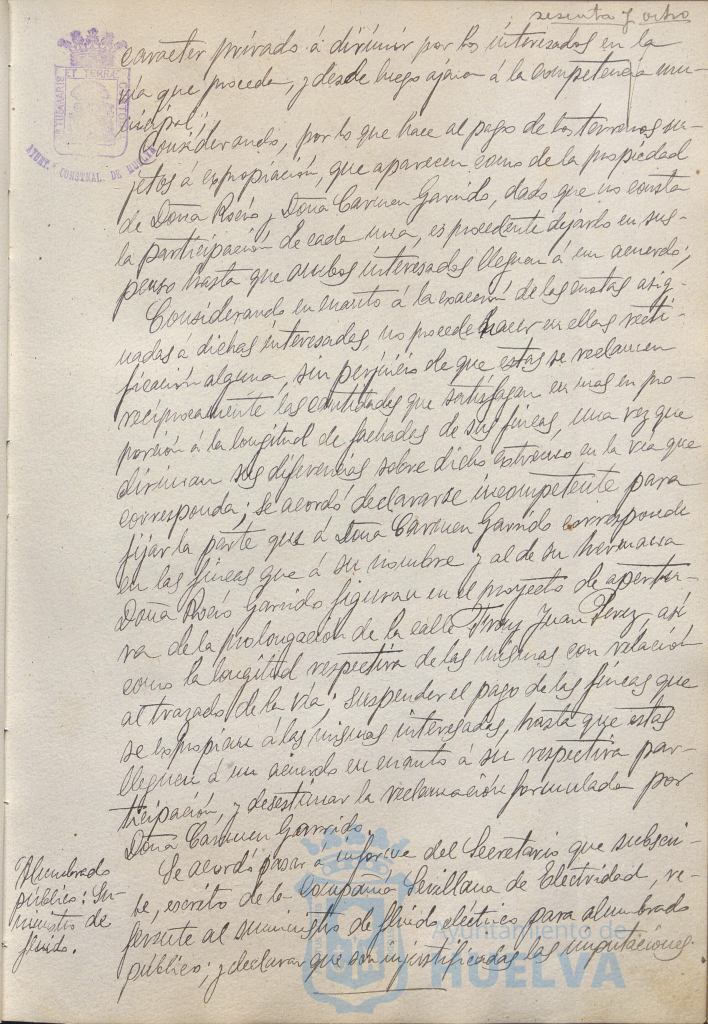 sesenta y ocho
caracter privado á dirimir por los interesados en la
via que proceda, y desde luego ajena á la competencia mu-
nicipal;
Considerando, por lo que hace al pago de los terrenos su-
jetos á expropiación, que aparecen como de la propiedad
de Doña Rocio y Doña Carmen Garrido, dado que no consta
la participación de cada una, es procedente dejarlo en sus-
penso hasta que ambos interesados lleguen á un acuerdo;
Considerando en cuanto á la exacción de las cuotas asig-
nadas á dichas interesadas, no procede hacer en ellas recti-
ficación alguna, sin perjuicio de que estas se reclamen
reciprocamente las cantidades que satisfagan en mas en pro-
porción á la longitud de fachadas de sus fincas, una vez que
diriman sus diferencias sobre dicho extremo en la via que
corresponda; se acordó declararse incompetente para
fijar la parte que á Doña Carmen Garrido corresponde
en las fincas que á su nombre y al de su hermana
Doña Rocio Garrido figuran en el proyecto de apertu-
ra de la prolongación de la calle Fray Juan Perez, asi
como la longitud respectiva de las mismas con relación
al trazado de la via; suspender el pago de las fincas que
se expropian á las mismas interesadas, hasta que estas
lleguen á un acuerdo en cuanto á su respectiva par-
ticipación, y desestimar la reclamación formulada por
Doña Carmen Garrido.
Alumbrado
público: Su-
ministro de
fluido.
Se acordó pasar á informe del Secretario que subscri-
be, escrito de la Compañia Sevillana de Electricidad, re-
ferente al suministro de fluido eléctrico para alumbrado
público; y declarar que son injustificadas las imputaciones
AYUNT.º CONSTNAL. DE HUELVA
Ayuntamiento de
HUELVA